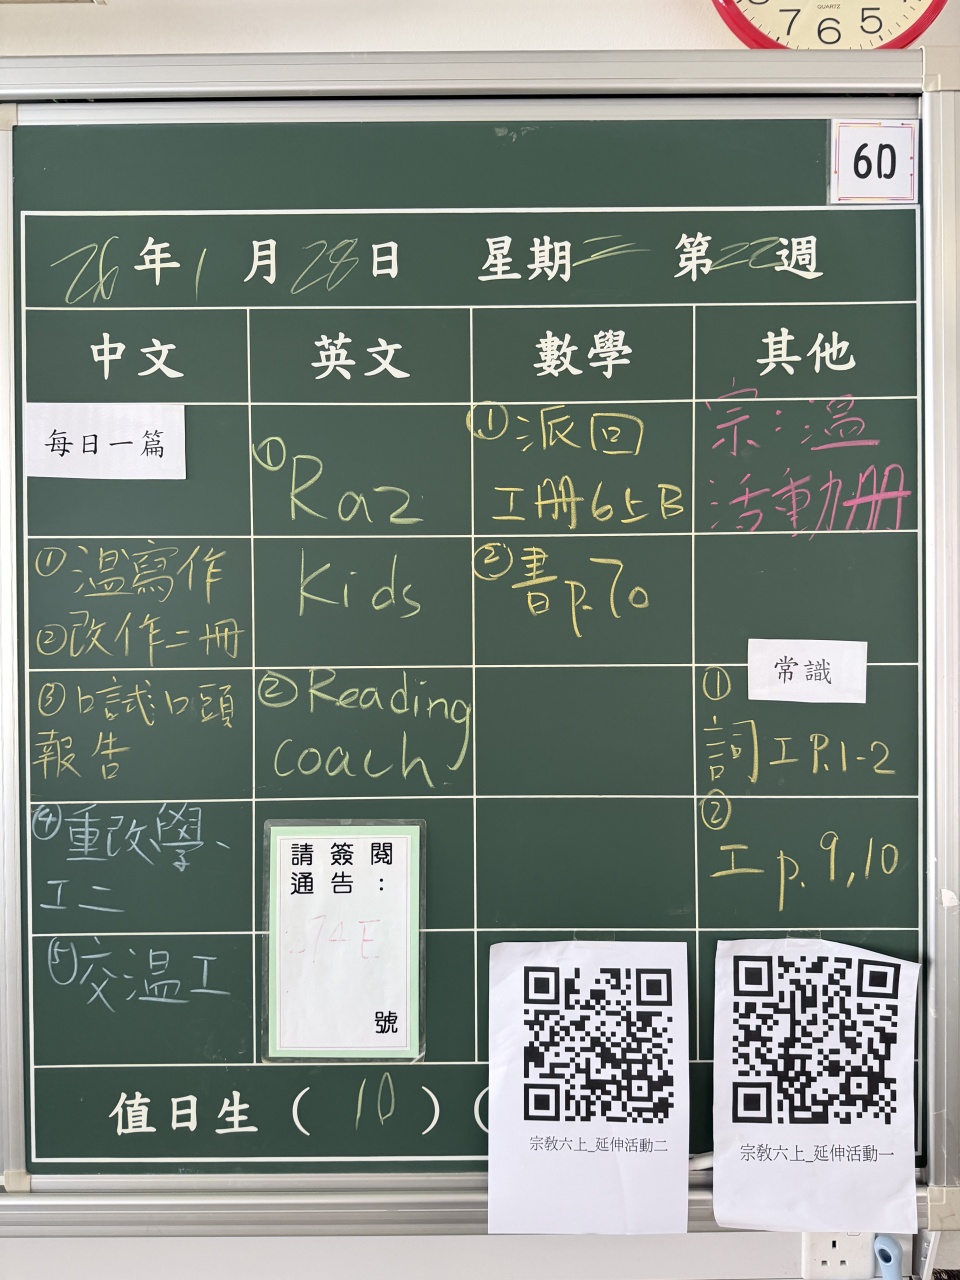 7 6 5
QUARTZ
6D
26年1月28日 星期三 第22週
中文 英文 數學 其他
每日一篇
①溫寫作
②改作二冊
③口試口頭
報告
④重改學、
工二
⑤交溫工
①
Raz
Kids
②Reading
coach
請簽閱
通告:
74E
號
①派回
工冊6上B
②書p.70
宗:溫
活動冊
常識
①
詞工P.1-2
②
工p.9,10
值日生(10)(
宗教六上_延伸活動二
宗教六上_延伸活動一